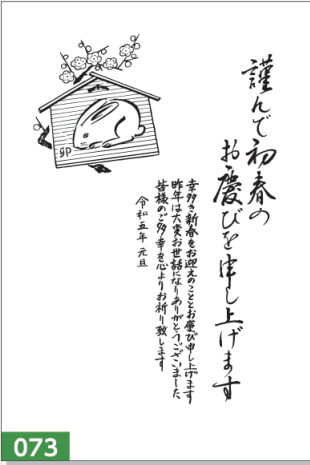 謹んで初春の
お慶びを申し上げます
幸多き新春をお迎えのこととお慶び申し上げます
昨年は大変お世話になりありがとうございました
皆様のご多幸を心よりお祈り致します
令和五年 元旦
卯
073